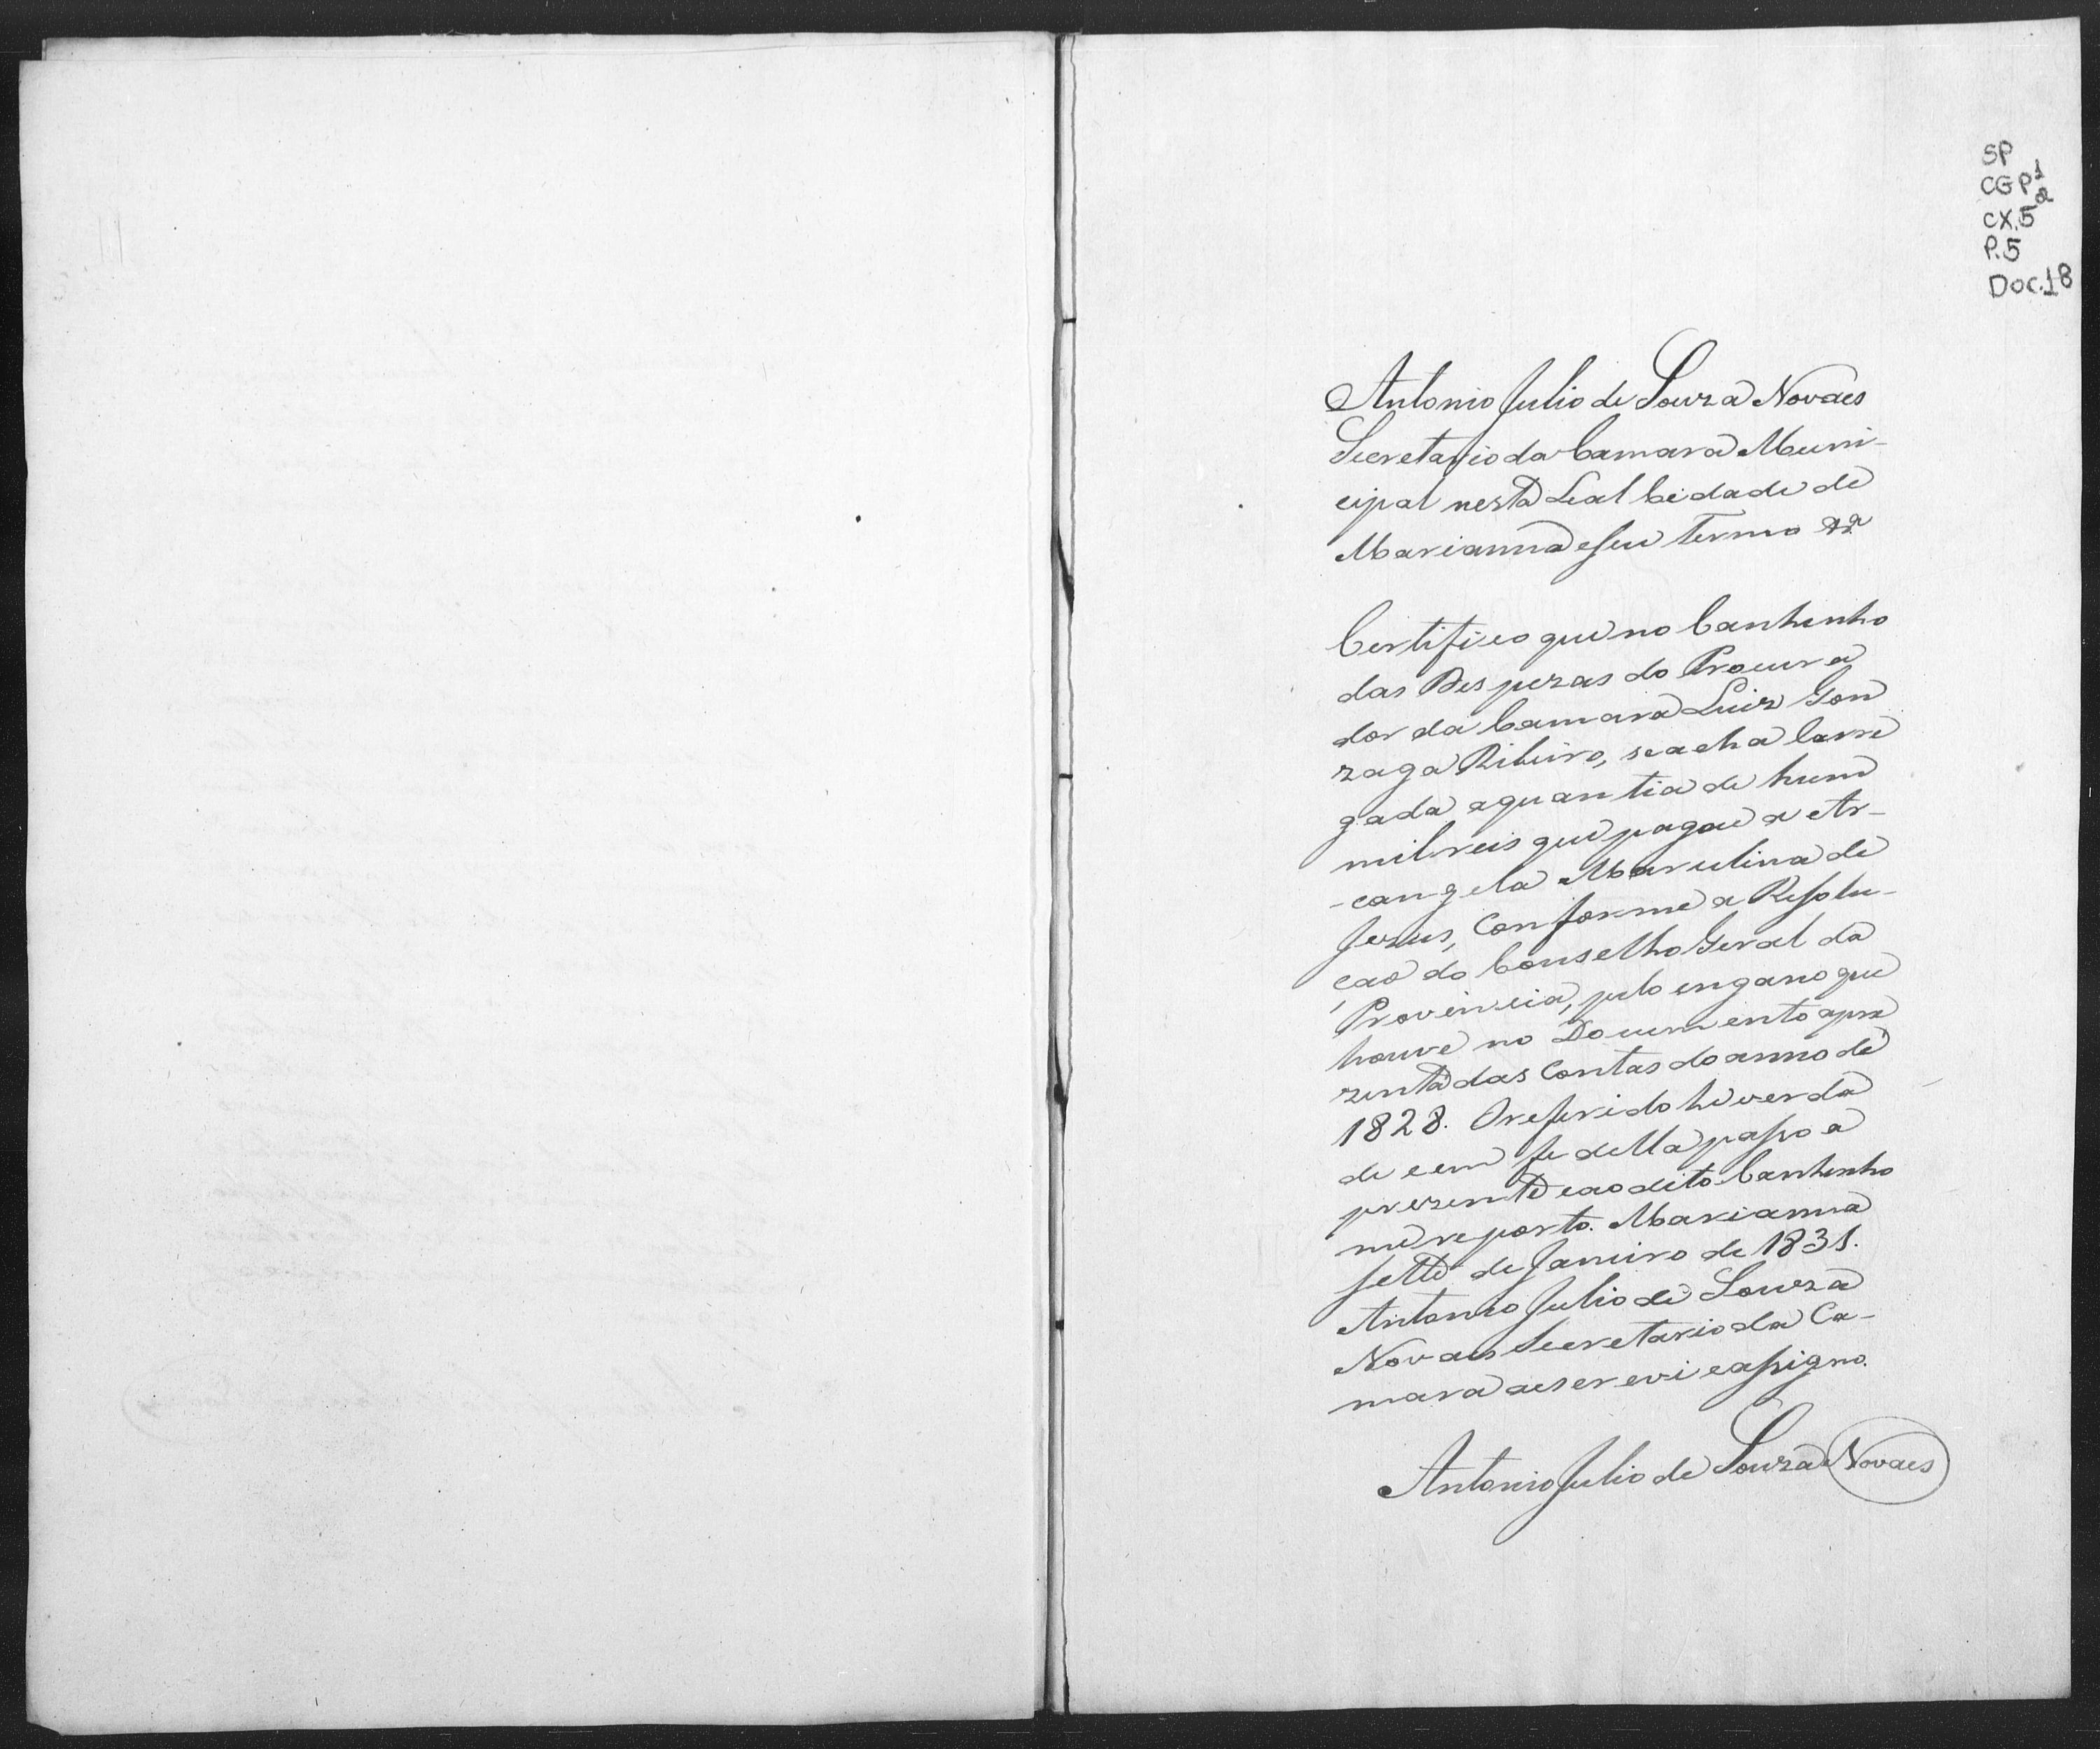 SP
CGP 1/2
CX.5
P.5
Doc.18
Antonio Julio de Souza Novaes
Secretario da Camara Muni-
cipal nesta Leal Cidade de
Marianna eseu termo &ª
Certifico que no Canhenho
das Despezas do Procura
dor da Camara Luiz Gon
zaga Ribeiro, seacha Carre
gada aquantia de hum
mil reis que pagou a Ar-
-cangela Marcelina de
Jezus, Conforme a Resolu-
ção do Conselho Geral da
Provincia, pelo engano que
houve no Documento apre
zentadas Contas do anno de
1828. Oreferido he verda
de eem fe della passo a
prezente eaodito Canhenho
me reporto. Marianna
sette de Janeiro de 1831.
Antonio Julio de Souza
Novaes Secretario da Ca-
mara aescrevi eassigno.
Antonio Julio de Souza Novaes